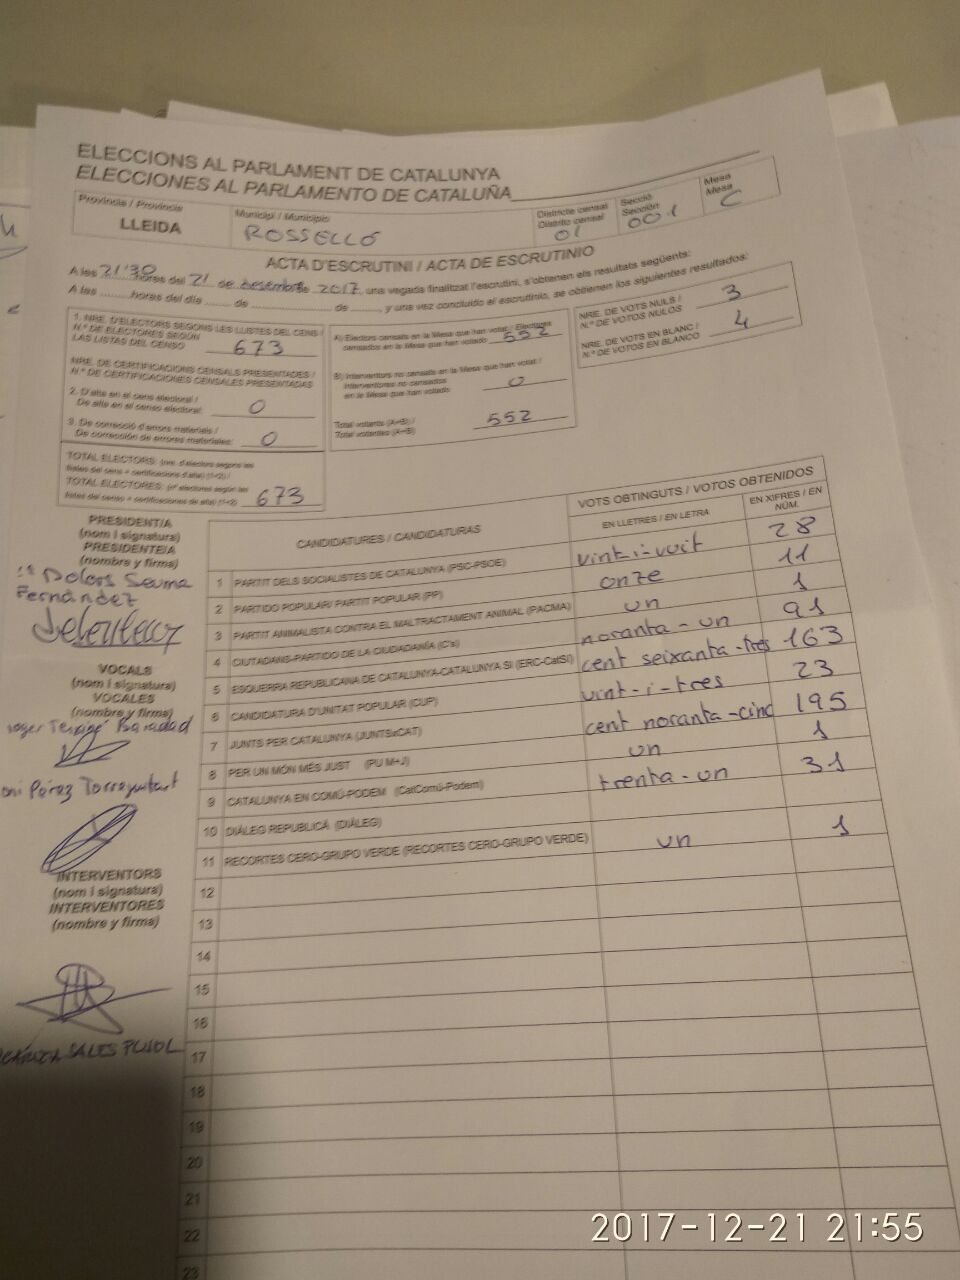 ELECCIONS AL PARLAMENT DE CATALUNYA
ELECCIONES AL PARLAMENTO DE CATALUÑA
Província / Provincia
LLEIDA
Municipi / Municipio
ROSSELLÓ
Districte censal
Distrito censal
01
Secció
Sección
001
Mesa
Mesa
C
ACTA D'ESCRUTINI / ACTA DE ESCRUTINIO
A les 21'30 hores del 21 de desembre de 2017, una vegada finalitzat l'escrutini, s'obtenen els resultats següents:
A las ..........horas del día ....... de .......................... de ........, y una vez concluido el escrutinio, se obtienen los siguientes resultados:
1. NRE. D'ELECTORS SEGONS LES LLISTES DEL CENS /
N.º DE ELECTORES SEGÚN
LAS LISTAS DEL CENSO
673
NRE. DE CERTIFICACIONS CENSALS PRESENTADES /
N.º DE CERTIFICACIONES CENSALES PRESENTADAS
2. D'alta en el cens electoral /
De alta en el censo electoral:
0
3. De correcció d'errors materials /
De corrección de errores materiales:
0
TOTAL ELECTORS: (nre. d'electors segons les
llistes del cens + certificacions d'alta) (1+2) /
TOTAL ELECTORES: (nº electores según las
listas del censo + certificaciones de alta) (1+2)
673
A) Electors censats en la Mesa que han votat / Electores
censados en la Mesa que han votado
552
B) Interventors no censats en la Mesa que han votat /
Interventores no censados
en la Mesa que han votado
0
Total votants (A+B) /
Total votantes (A+B)
552
NRE. DE VOTS NULS /
N.º DE VOTOS NULOS
3
NRE. DE VOTS EN BLANC /
N.º DE VOTOS EN BLANCO
4
PRESIDENT/A
(nom i signatura)
PRESIDENTE/A
(nombre y firma)
Dolors Seuma
Fernàndez
VOCALS
(nom i signatura)
VOCALES
(nombre y firma)
Pérez
INTERVENTORS
(nom i signatura)
INTERVENTORES
(nombre y firma)
SALES PUJOL
CANDIDATURES / CANDIDATURAS
VOTS OBTINGUTS / VOTOS OBTENIDOS
EN LLETRES / EN LETRA
EN XIFRES / EN NÚM.
1 PARTIT DELS SOCIALISTES DE CATALUNYA (PSC-PSOE) vint-i-vuit 28
2 PARTIDO POPULAR/ PARTIT POPULAR (PP) onze 11
3 PARTIT ANIMALISTA CONTRA EL MALTRACTAMENT ANIMAL (PACMA) un 1
4 CIUTADANS-PARTIDO DE LA CIUDADANÍA (C's) noranta-un 91
5 ESQUERRA REPUBLICANA DE CATALUNYA-CATALUNYA SÍ (ERC-CatSí) cent seixanta-tres 163
6 CANDIDATURA D'UNITAT POPULAR (CUP) vint-i-tres 23
7 JUNTS PER CATALUNYA (JUNTSxCAT) cent noranta-cinc 195
8 PER UN MÓN MÉS JUST (PU M+J) un 1
9 CATALUNYA EN COMÚ-PODEM (CatComú-Podem) trenta-un 31
10 DIÀLEG REPUBLICÀ (DIÀLEG)
11 RECORTES CERO-GRUPO VERDE (RECORTES CERO-GRUPO VERDE) un 1
12
13
14
15
16
17
18
19
20
21
22
23
2017-12-21 21:55